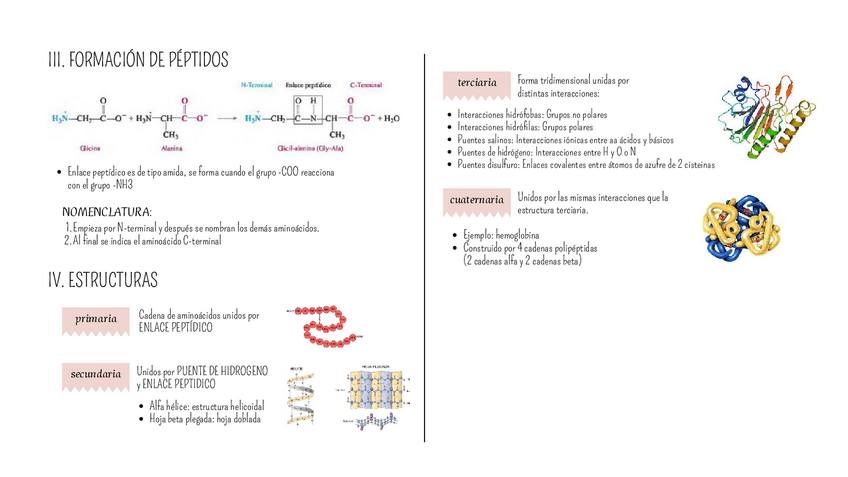 III. FORMACIÓN DE PÉPTIDOS
N-Terminal Enlace peptídico C-Terminal
O O H O
H₃N⁺—CH₂—C—O⁻ + H₃N⁺—CH—C—O⁻ → H₃N⁺—CH₂—C—N—CH—C—O⁻ + H₂O
CH₃ CH₃
Glicina Alanina Glicil-alanina (Gly-Ala)
• Enlace peptídico es de tipo amida, se forma cuando el grupo -COO reacciona
con el grupo -NH3
NOMENCLATURA:
1. Empieza por N-terminal y después se nombran los demás aminoácidos.
2. Al final se indica el aminoácido C-terminal
IV. ESTRUCTURAS
primaria
Cadena de aminoácidos unidos por
ENLACE PEPTÍDICO
secundaria
Unidos por PUENTE DE HIDROGENO
y ENLACE PEPTIDICO
• Alfa hélice: estructura helicoidal
• Hoja beta plegada: hoja doblada
HÉLICE
HOJA PLEGADA
terciaria
Forma tridimensional unidas por
distintas interacciones:
• Interacciones hidrófobas: Grupos no polares
• Interacciones hidrófilas: Grupos polares
• Puentes salinos: Interacciones iónicas entre aa ácidos y básicos
• Puentes de hidrógeno: Interacciones entre H y O o N
• Puentes disulfuro: Enlaces covalentes entre átomos de azufre de 2 cisteinas
cuaternaria
Unidos por las mismas interacciones que la
estructura terciaria.
• Ejemplo: hemoglobina
• Construido por 4 cadenas polipéptidas
(2 cadenas alfa y 2 cadenas beta)